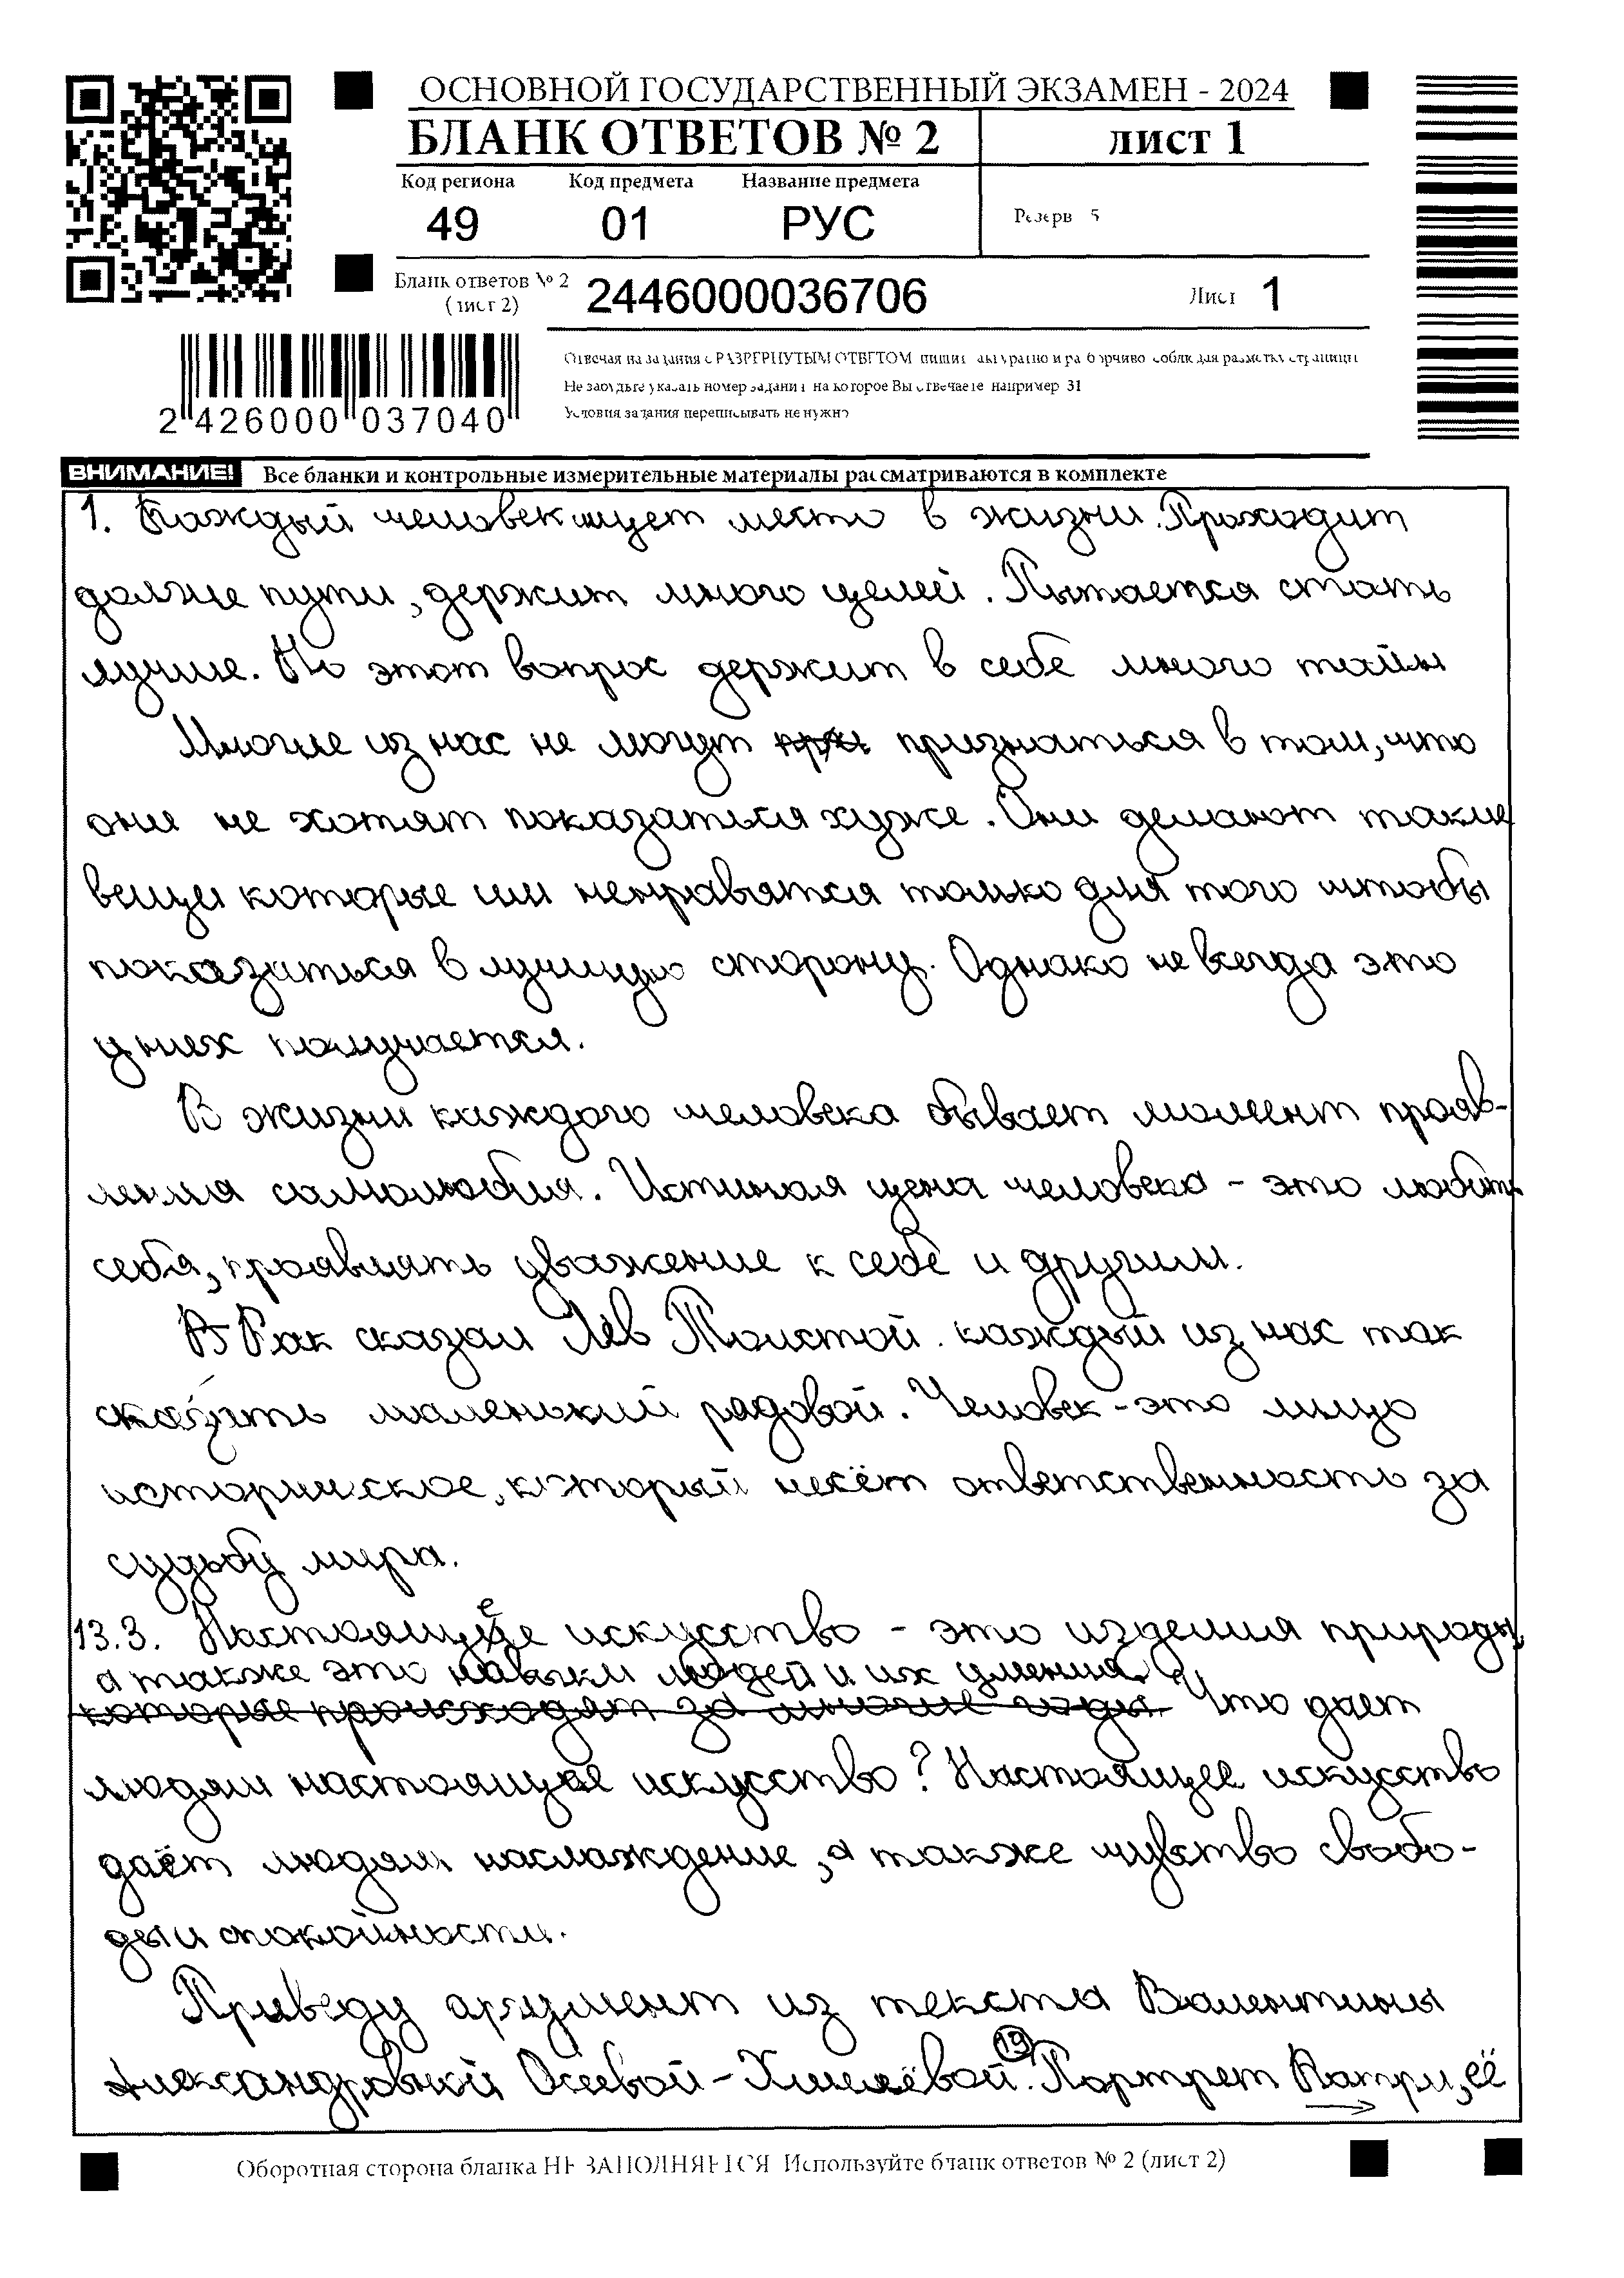 ОСНОВНОЙ ГОСУДАРСТВЕННЫЙ ЭКЗАМЕН - 2024
БЛАНК ОТВЕТОВ № 2 лист 1
Код региона Код предмета Название предмета
49 01 РУС Резерв 5
Бланк ответов № 2 (лист 2) 2446000036706 Лист 1
Отвечая на задания с РАЗВЕРНУТЫМ ОТВЕТОМ пишите аккуратно и разборчиво соблюдая разметку страницы
Не забудьте указать номер задания на которое Вы отвечаете например 31
Условия задания переписывать не нужно
2 426000 037040
ВНИМАНИЕ! Все бланки и контрольные измерительные материалы рассматриваются в комплекте
1. Каждый человек ищет место в жизни. Проходит
долгие пути, держит много целей. Пытается стать
лучше. Но этот вопрос держит в себе много тайн
Многие из нас не могут признаться в том, что
они не хотят показаться хуже. Они делают такие
вещи которые им ненравятся только для того чтобы
показаться в лучшую сторону. Однако не всегда это
у них получается.
В жизни каждого человека бывает момент прояв-
ления самолюбия. Истиная цена человека - это любить
себя, проявлять уважение к себе и другим.
Как сказал Лев Толстой. каждый из нас так
сказать маленький рядовой. Человек - это лицо
историческое, который несёт ответственность за
судьбу мира.
13.3. Настоящее искусство - это изделия природы,
а также это навыки людей и их умения.
которые происходят за многие годы. Что дает
людям настоящее искусство? Настоящее искусство
даёт людям наслаждение, а также чувство свобо-
ды и спокойности.
Приведу аргумент из текста Валентины
Александровной Осеевой-Хмелёвой. (19) Портрет Катри, её
Оборотная сторона бланка НЕ ЗАПОЛНЯЕТСЯ Используйте бланк ответов № 2 (лист 2)